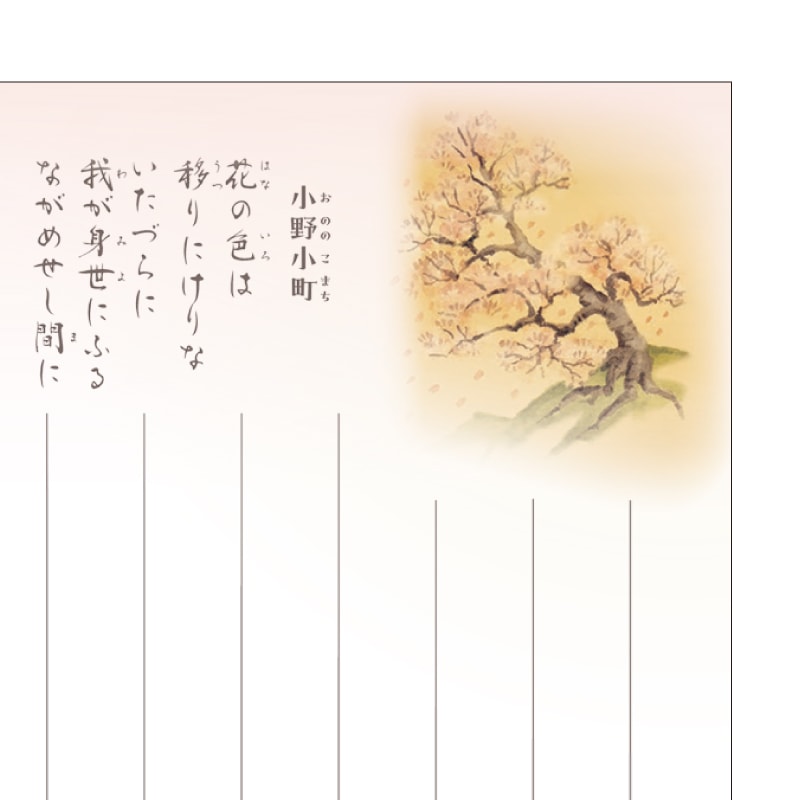 小野小町
おののこまち
花の色は
はな いろ
移りにけりな
うつ
いたづらに
我が身世にふる
わ み よ
ながめせし間に
ま